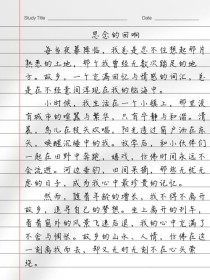 Study Title
Date
思念的回响
每当夜幕降临，我总是忍不住想起那片
熟悉的土地，那个我曾经无数次踏足的地
方。故乡，一个充满回忆与情感的词汇，总
是在不经意间浮现在我的脑海中。
小时候，我生活在一个小镇上，那里没
有城市的喧嚣与繁华，只有宁静与和谐。清
晨，鸟儿在枝头欢唱，阳光透过窗户洒在床
头，唤醒沉睡中的我。放学后，和小伙伴们
一起在田野中奔跑、嬉戏，仿佛时间永远不
会流逝。河边垂钓，田间采摘，那些无忧无
虑的日子，成为我心中最珍贵的记忆。
然而，随着年龄的增长，我不得不离开
故乡，追寻自己的梦想。坐上离开的列车，
看着窗外的风景飞速后退，我的心中充满了
不舍与惆怅。故乡的山水、人情，仿佛在这
一刻离我而去，却又无时无刻不在心头萦
绕。